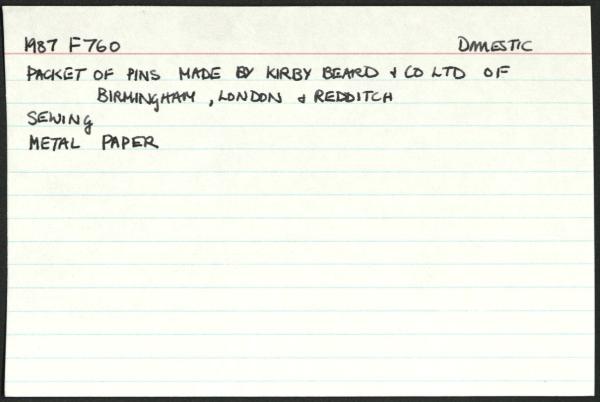 1987 F760 DOMESTIC
PACKET OF PINS MADE BY KIRBY BEARD & CO LTD OF
BIRMINGHAM, LONDON & REDDITCH
SEWING
METAL PAPER